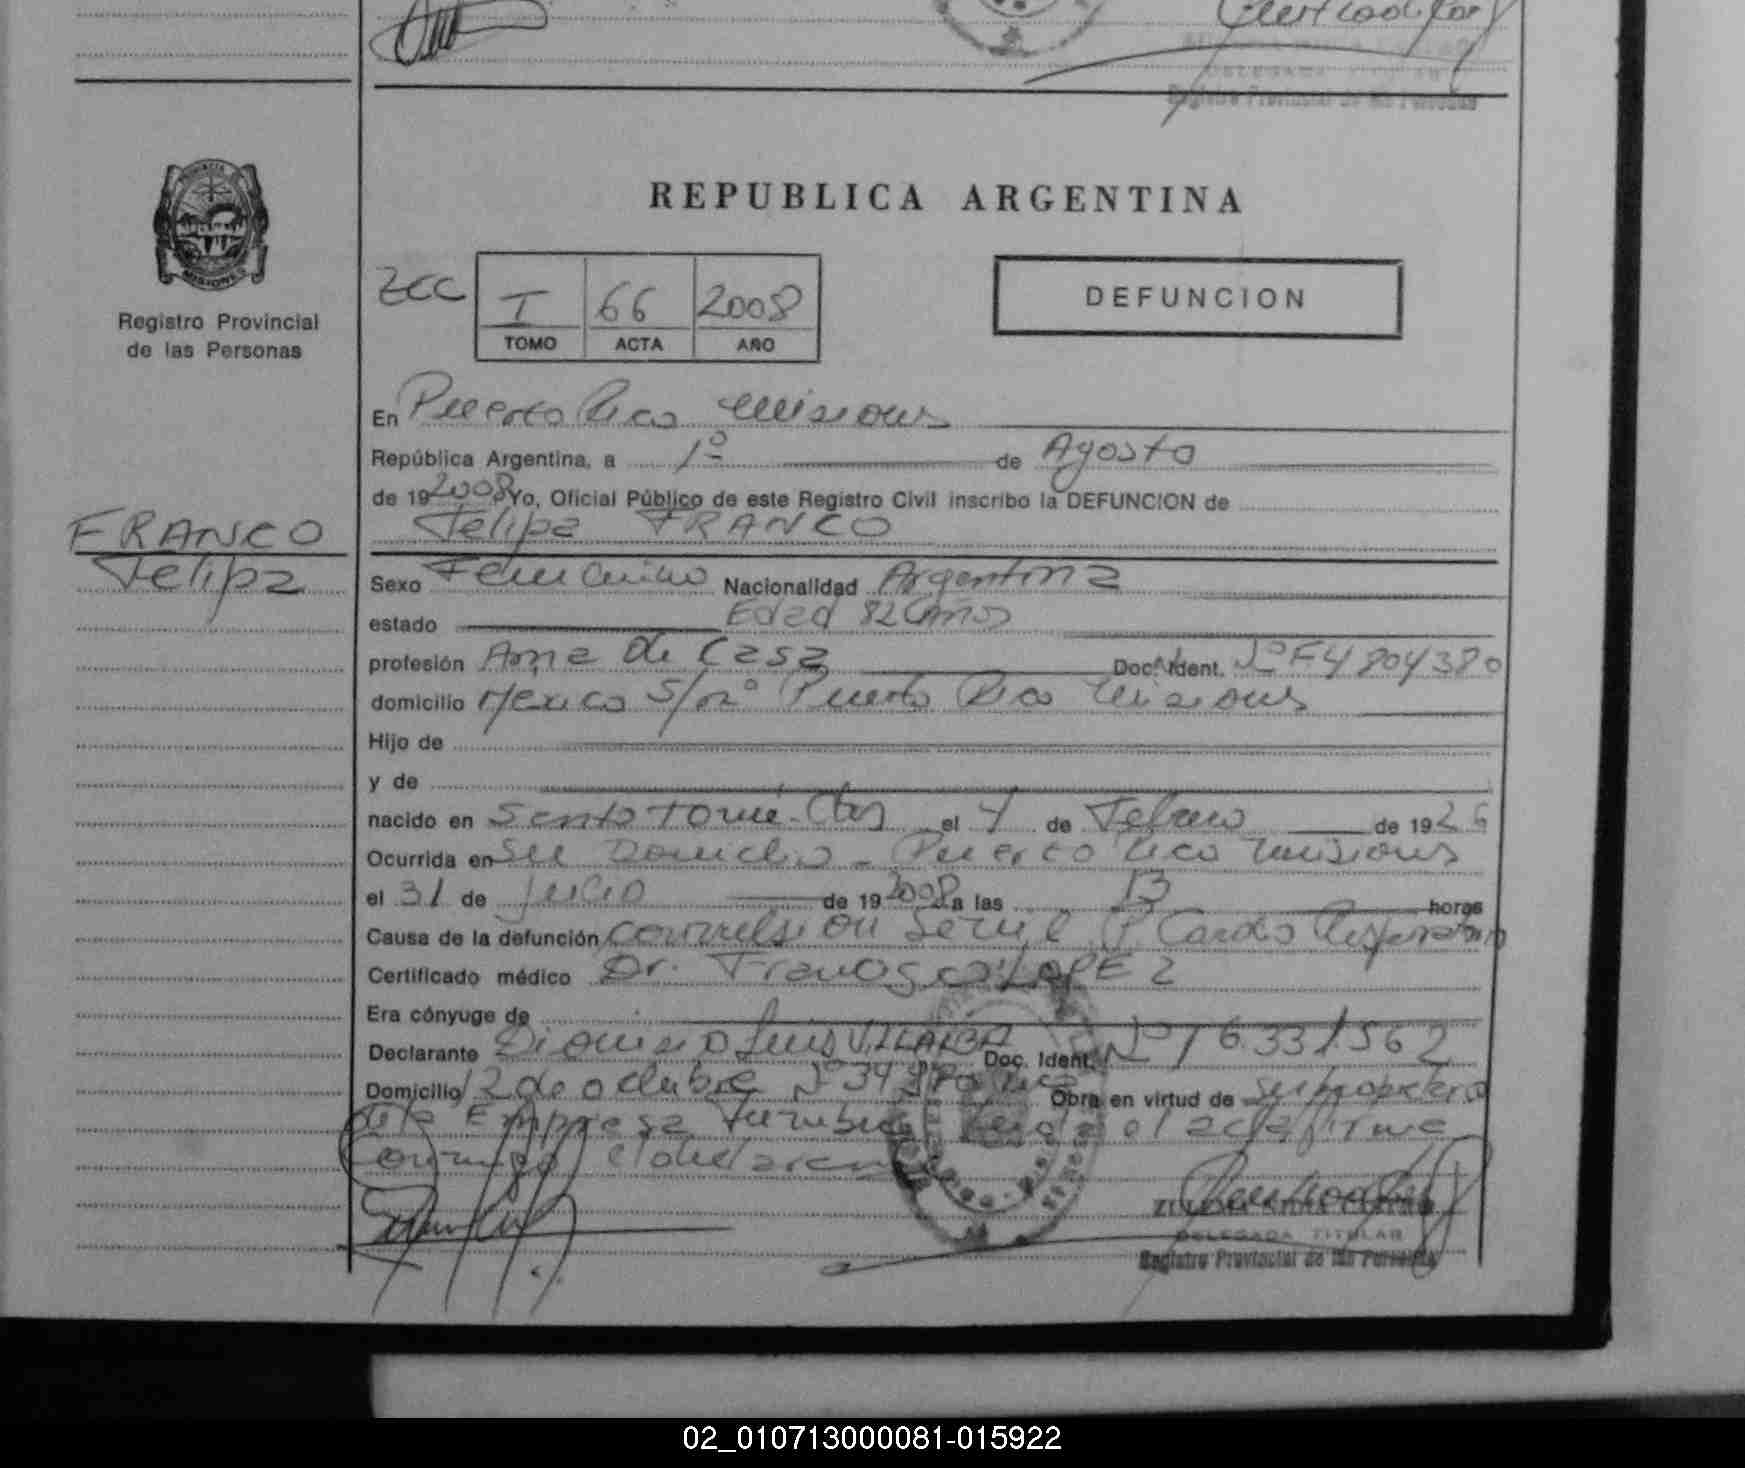 Registro Provincial de las Personas
MISIONES
Registro Provincial
de las Personas
REPUBLICA ARGENTINA
I 66 2008
TOMO ACTA AÑO
DEFUNCION
En Puerto Rico Misiones
República Argentina, a 1º de Agosto
de 19 2008 Yo, Oficial Público de este Registro Civil inscribo la DEFUNCION de
Felipa FRANCO
FRANCO
Felipa
Sexo Femenino Nacionalidad Argentina
estado Edad 82 años
profesión Ama de Casa Doc. Ident. Nº F4804380
domicilio Mexico s/nº Puerto Rico Misiones
Hijo de
y de
nacido en Santo Tomé Ctes el 4 de Febrero de 1926
Ocurrida en su Domicilio - Puerto Rico Misiones
el 31 de Julio de 19 2008 a las 13 horas
Causa de la defunción convulsion P. Cardio Respiratorio
Certificado médico Dr. Francisco LOPEZ
Era cónyuge de
Declarante Dionisio Luis VILLALBA Doc. Ident. Nº 16.331.562
Domicilio 12 de octubre Nº Obra en virtud de
de la Empresa Funebre Leida el acta firma
conmigo el declarante
DELEGADA TITULAR
Registro Provincial de las Personas
02_010713000081-015922